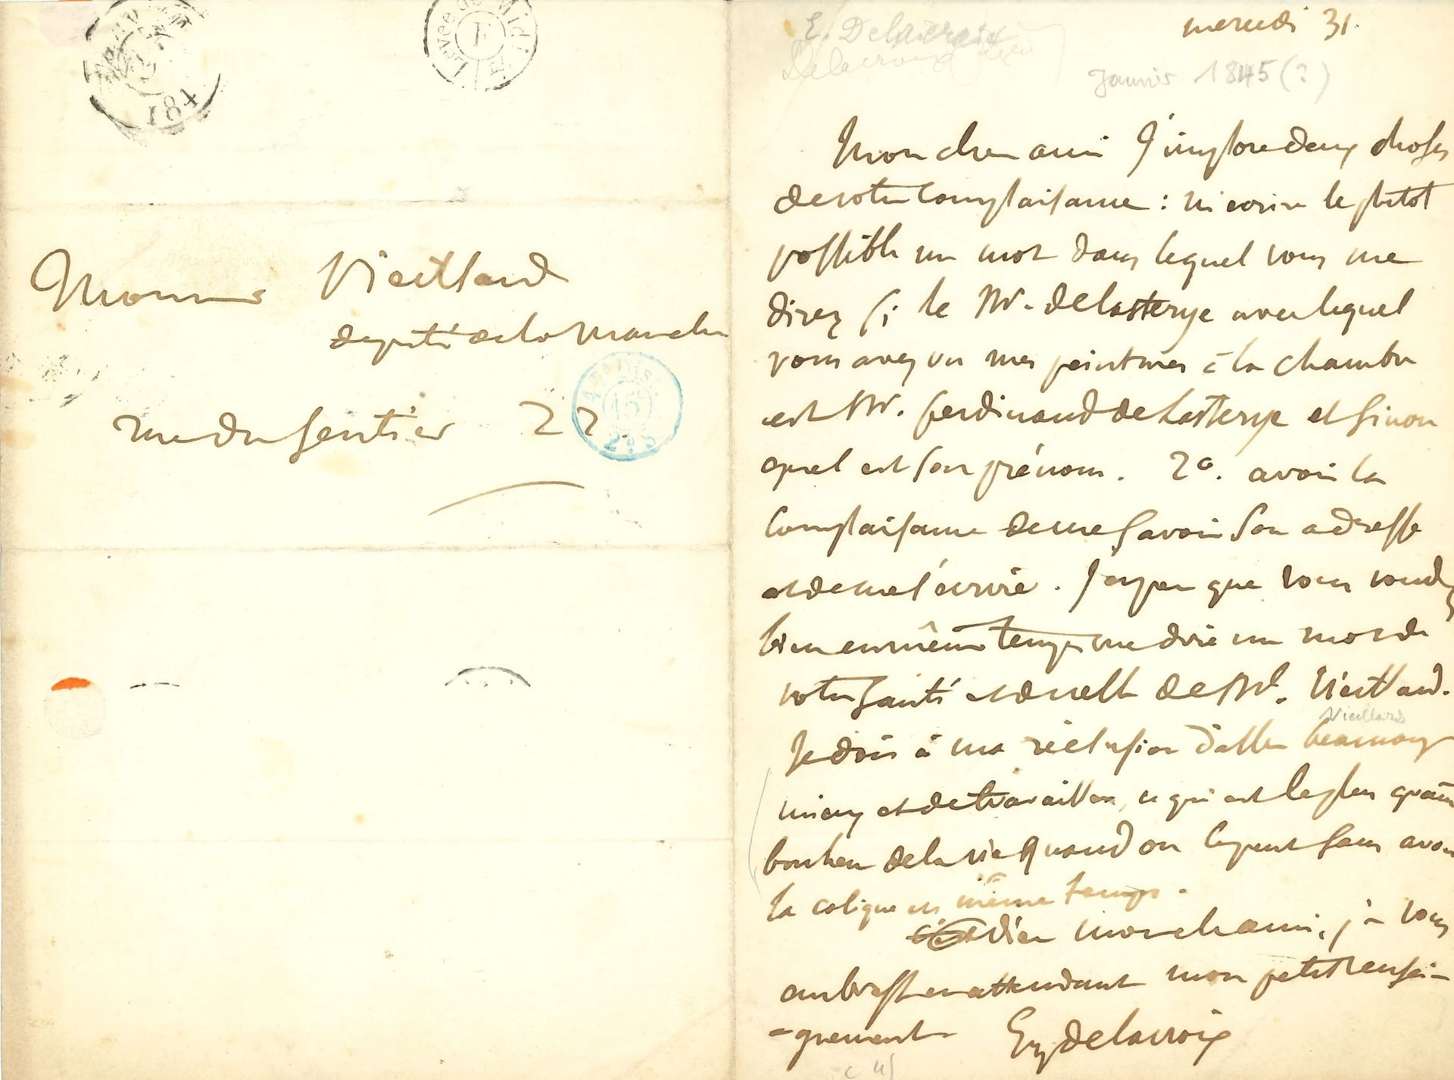 Levée de Midi
184
Monsieur Vieillard
député de la Manche
rue du Sentier 22.
E. Delacroix
Delacroix
mercredi 31.
Janvier 1845 (?)
Mon cher ami J'implore deux choses
de votre complaisance : m'écrire le plutot
possible un mot dans lequel vous me
direz si le Mr. de Lasterye avec lequel
vous avez vu mes peintures à la chambre
est Mr. ferdinand de Lasterye et sinon
quel est son prénom. 2°. avoir la
complaisance de me savoir son adresse
et de me l'écrire. J'espere que vous voudrez
bien en même temps me dire un mot de
votre santé et de celle de Me. Vieillard.
Vieillard
Je dois à ma réclusion d'aller beaucoup
mieux et de travailler, ce qui est le plus grand
bonheur de la vie quand on le peut sans avoir
la colique en même temps.
Adieu mon cher ami, je vous
embrasse en attendant mon petit rensei-
-gnement Eug Delacroix